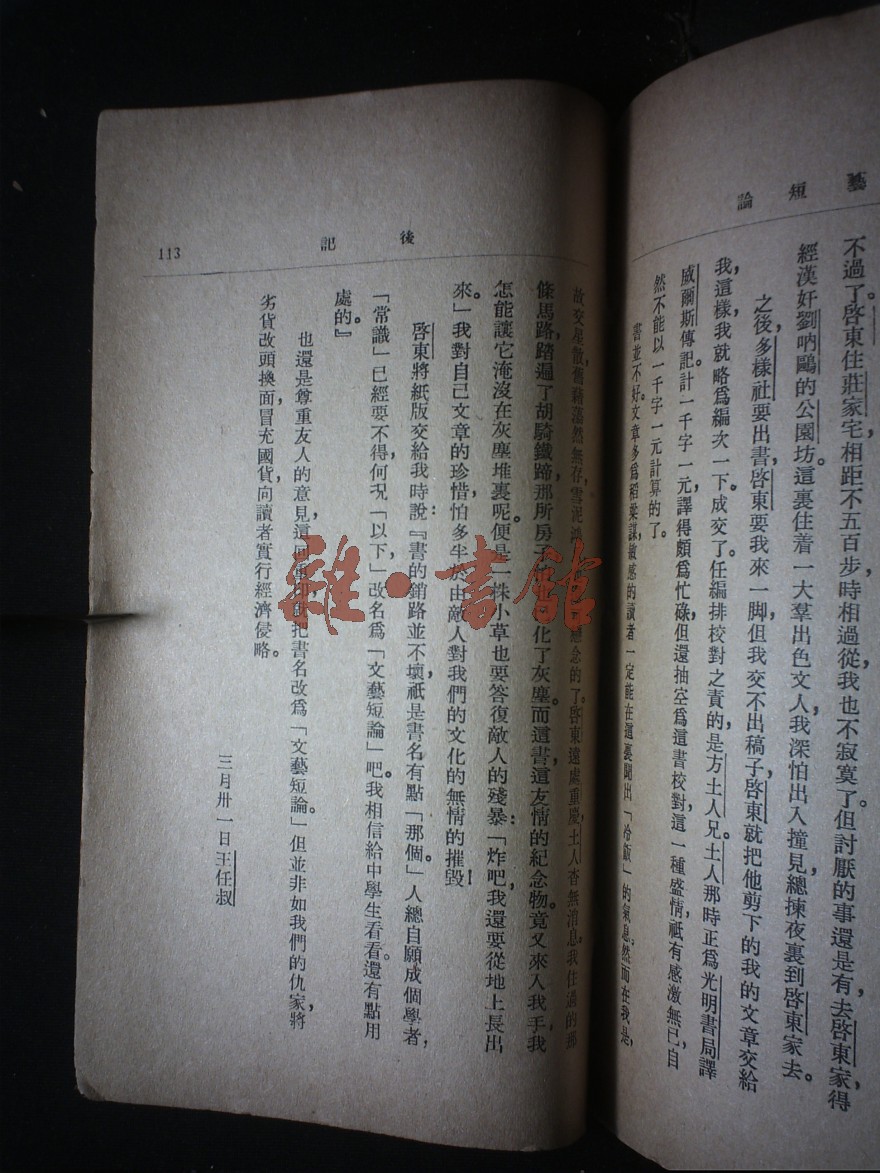 藝短論
不過了。啓東住莊家宅，相距不五百步，時相過從，我也不寂寞了。但討厭的事還是有，去啓東家得
經漢奸劉吶鷗的公園坊。這裏住着一大羣出色文人，我深怕出入撞見，總揀夜裏到啓東家去。
之後，多樣社要出書，啓東要我來一脚，但我交不出稿子，啓東就把他剪下的我的文章交給
我，這樣，我就略爲編次一下。成交了。任編排校對之責的，是方土人兄。土人那時正爲光明書局譯
威爾斯傳記，計一千字一元，譯得頗爲忙碌，但還抽空爲這書校對，這一種盛情，祇有感激無已，自
然不能以一千字一元計算的了。
書並不好。文章多爲稻粱謀，敏感的讀者一定能在這裏聞出「冷飯」的氣息，然而在我是，
後記
113
故交星散，舊藉蕩然無存，雪泥鴻 念的了。啓東遠處重慶，土人杳無消息。我住滿的那
條馬路，踏遍了胡騎鐵蹄，那所房子 化了灰塵。而這書，這友情的紀念物，竟又來入我手，我
怎能讓它淹沒在灰塵堆裏呢。便是一株小草，也要答復敵人的殘暴：「炸吧，我還要從地上長出
來。」我對自己文章的珍惜，怕多半於由敵人對我們的文化的無情的摧毀！
啓東將紙版交給我時說：『書的銷路並不壞，祇是書名有點「那個」。人總自願成個學者，
「常識」已經要不得，何况「以下」，改名爲「文藝短論」吧。我相信給中學生看看。還有點用
處的。』
也還是尊重友人的意見，這回重印就把書名改爲「文藝短論」。但並非如我們的仇家，將
劣貨改頭換面，冒充國貨，向讀者實行經濟侵略。
三月卅一日王任叔
雜·書館